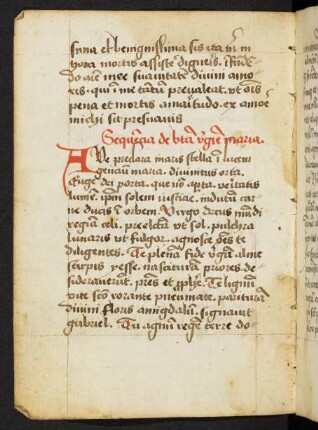 sima et benignissima sis ita mi in
hora mortis assiste digneris. infunde
do aie mee suavitate divini amo
ris. qui in me tatum prevaleat. ut ois
pena et mortis amaritudo. ex amoe
michi sit presuavis
Sequecia de bta vgie maria.
Ave preclara maris stella i lucem
genciu maria. divinitus orta.
Euge dei porta. que no apta. veritatis
lume. ipm solem iusticie. indutu car
ne ducis i orbem Virgo decus mudi
regina celi. preelecta ut sol. pulchra
lunaris ut fulgor. agnosce oes te
diligentes. Te plena fide vga. alme
stirpis yesse. nascitura priores de
siderauerut. pres et pphe. Te lignu
vite sco rorante pneumate. paritura
divini floris amigdalu. signauit
gabriel. Tu agnu rege terre do